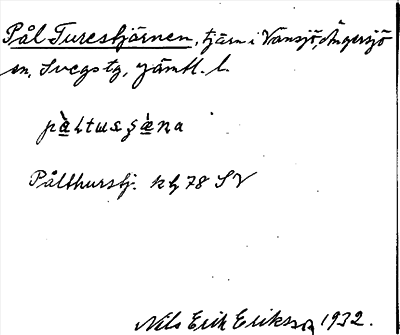 Pål Turestjärnen, tjärn i Vänsjö, Ängersjö
sn, Svegs tg, Jämtl. l.
Pålthurstj. kbl 78 SV
Nils Erik Eriksson 1932.